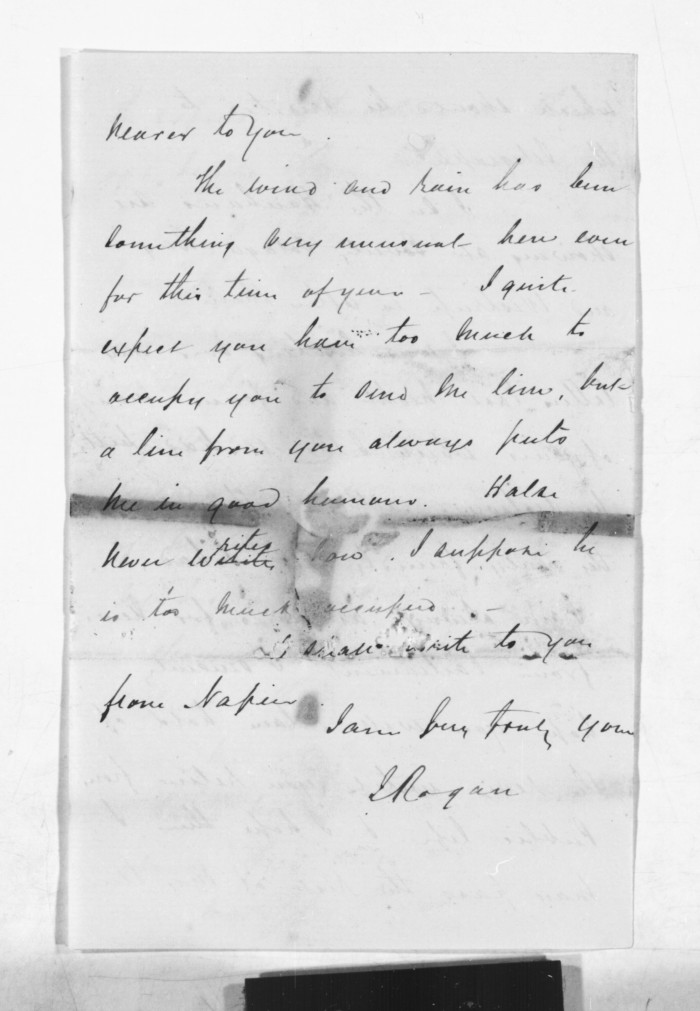 nearer to you.
The wind and rain has been
something very unusual here even
for this time of year – I quite
expect you have too much to
occupy you to send me line, but
a line from you always puts
me in good humour. Halse
never writes now. I suppose he
is too much occupied –
I shall write to you
from Napier.
I am very truly yours
J Rogan